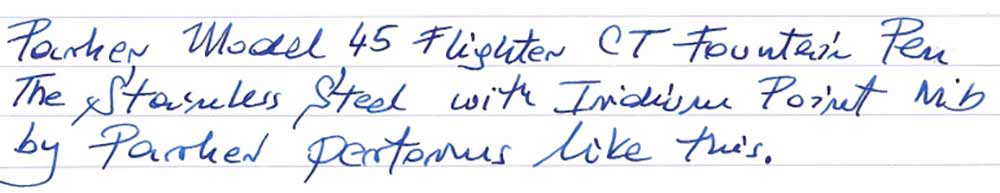 Parker Model 45 Flighter CT Fountain Pen
The Stainless Steel with Iridium Point Nib
by Parker performs like this.